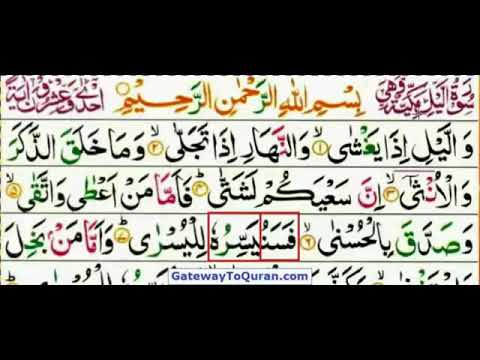 سُوْرَةُ الَّيْلِ مَكِّيَّةٌ وَّهِيَ بِسْمِ اللهِ الرَّحْمٰنِ الرَّحِيْمِ اِحْدٰى وَعِشْرُوْنَ اٰيَةً
وَالَّيْلِ اِذَا يَغْشٰى ۙ۱ وَالنَّهَارِ اِذَا تَجَلّٰى ۙ۲ وَمَا خَلَقَ الذَّكَرَ
وَالْاُنْثٰٓى ۙ۳ اِنَّ سَعْيَكُمْ لَشَتّٰى ؕ۴ فَاَمَّا مَنْ اَعْطٰى وَاتَّقٰى ۙ۵
وَصَدَّقَ بِالْحُسْنٰى ۙ۶ فَسَنُيَسِّرُهٗ لِلْيُسْرٰى ؕ۷ وَاَمَّا مَنْۢ بَخِلَ
GatewayToQuran.com